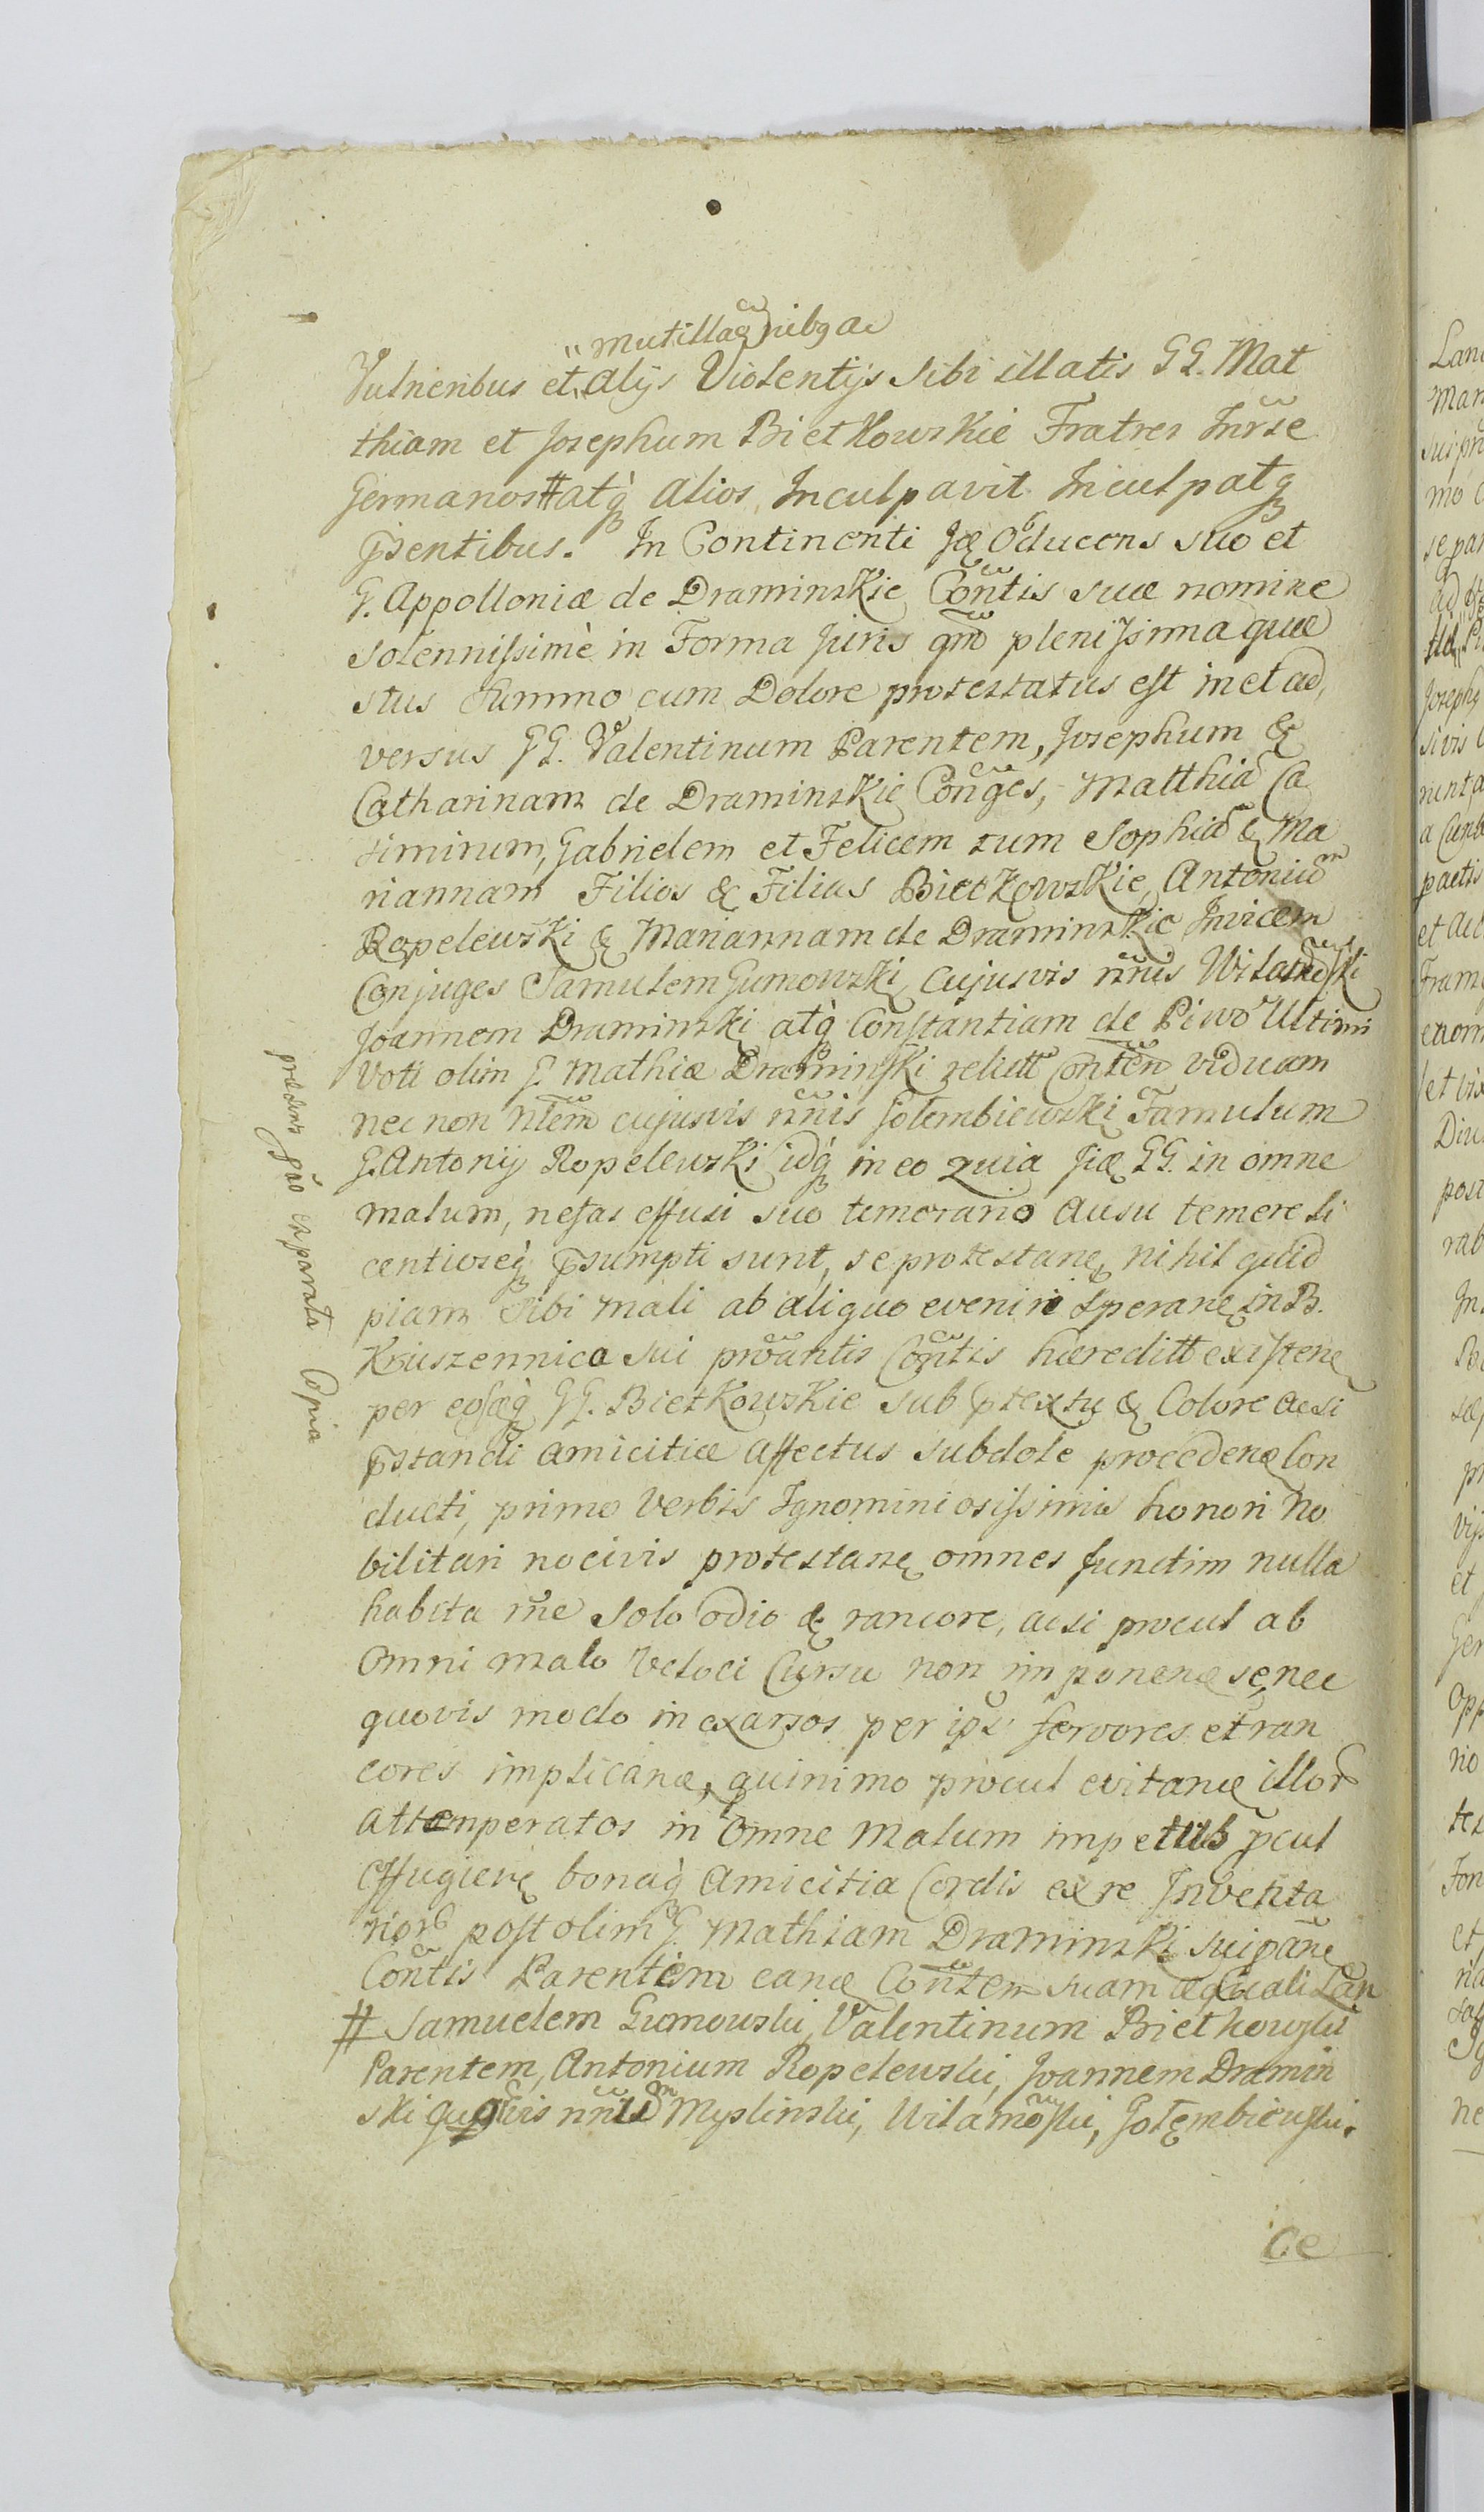 "mutillaõnibꝫ ac
Vulneribus et "alijs Violentijs sibi illatis GG. Mat
thiam et Josephum Bietkowskie Fratres Inr̃se
Germanos # atq̀ alios, Inculpavit Inculpatq̀
p̃sentibus. In Continenti Jæ Oducens suo et
G. Appolloniæ de Draminskie Con̄tis suæ nomine
solennissimè in Forma Juris qm̃o plenissima quæ
stus summo cum Dolore protestatus est in et ad
versus GG. Valentinum Parentem, Josephum &
Catharinam de Draminskie Coñges, Matthiã Ca
simirum, Gabrielem et Felicem tum Sophiã & Ma
riannam Filios & Filias Bietkowskie, Antoniũm
Ropelewski & Mariannam de Draminskie Invicem
Conjuges Samulem Gumowski, cujusvis nñis
Joannem Draminski atq̀ Constantiam de Piwo Ultimi
Voti olim G. Mathiæ Draminski relictt Con̄tem viduam
nec non Nlẽm cujusvis nñis Golembiewski Famulum
G. Antonij Ropelewski idq̀ in eo quia Jiæ GG. in omne
malum, nefas effusi suo temerario ausu temere li
centioseq̀ p̃sumpti sunt, se protestanę nihil quid
piam sibi mali ab aliquo eveniri speranę in B.
Kruszennica sui proañtis Coñtis hæreditt existenę
per eosq̀ GG. Bietkowskie sub p̃textu & Colore acsi
p̃standi amicitiæ affectus subdole procedenę Con
ducti, primo Verbis Ignominiosissimis honori No
bilitari nocivis protestanę omnes Junctim nulla
habita rñe solo odio & rancore, acsi procul ab
omni malo Veloci Cursu non imponenę se, nec
quovis modo in exarsos per ips̃ fervores et ran
cores implicanę, quinimo procul evitanę illor̃
attemperatos in omne malum impetus pcul
effugienę bonaq̀ Amicitia Cordis ex re Inventa
rior̃ post olim G. Mathiam Draminski sui panę
Coñtis Parentem eanę Coñtem suam æquali Lan
# Samuelem Gumowski, Valentinum Biethowski
Parentem, Antonium Ropelewski, Joannem Dramin
ski nñis Myslinski, Wilamõski, Gołęmbiewski.
ce
Copia